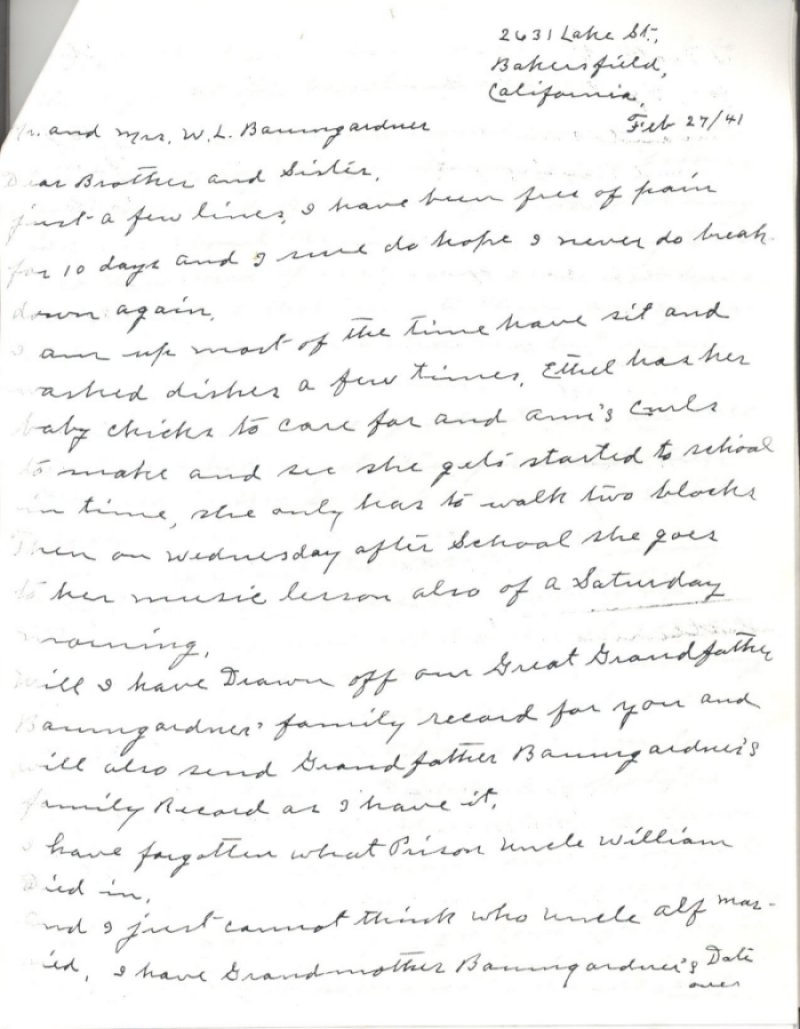 2631 Lake St.,
Bakersfield,
California,
Feb 27/41
Mr. and Mrs. W. L. Baumgardner
Dear Brother and Sister,
just a few lines, I have been free of pain
for 10 days and I sure do hope I never do break
down again.
I am up most of the time have sit and
washed dishes a few times, Ethel has her
baby chicks to care for and ann's curls
to make and see she gets started to school
in time, she only has to walk two blocks
Then on Wednesday after School she goes
to her music lesson also of a Saturday
morning.
Will I have Drawn off our Great Grandfather
Baumgardner' family record for you and
will also send Grandfather Baumgardner's
family Record as I have it.
I have forgotten what Prison uncle William
Died in,
and I just cannot think who uncle alf mar-
ried, I have Grandmother Baumgardner's Date
over